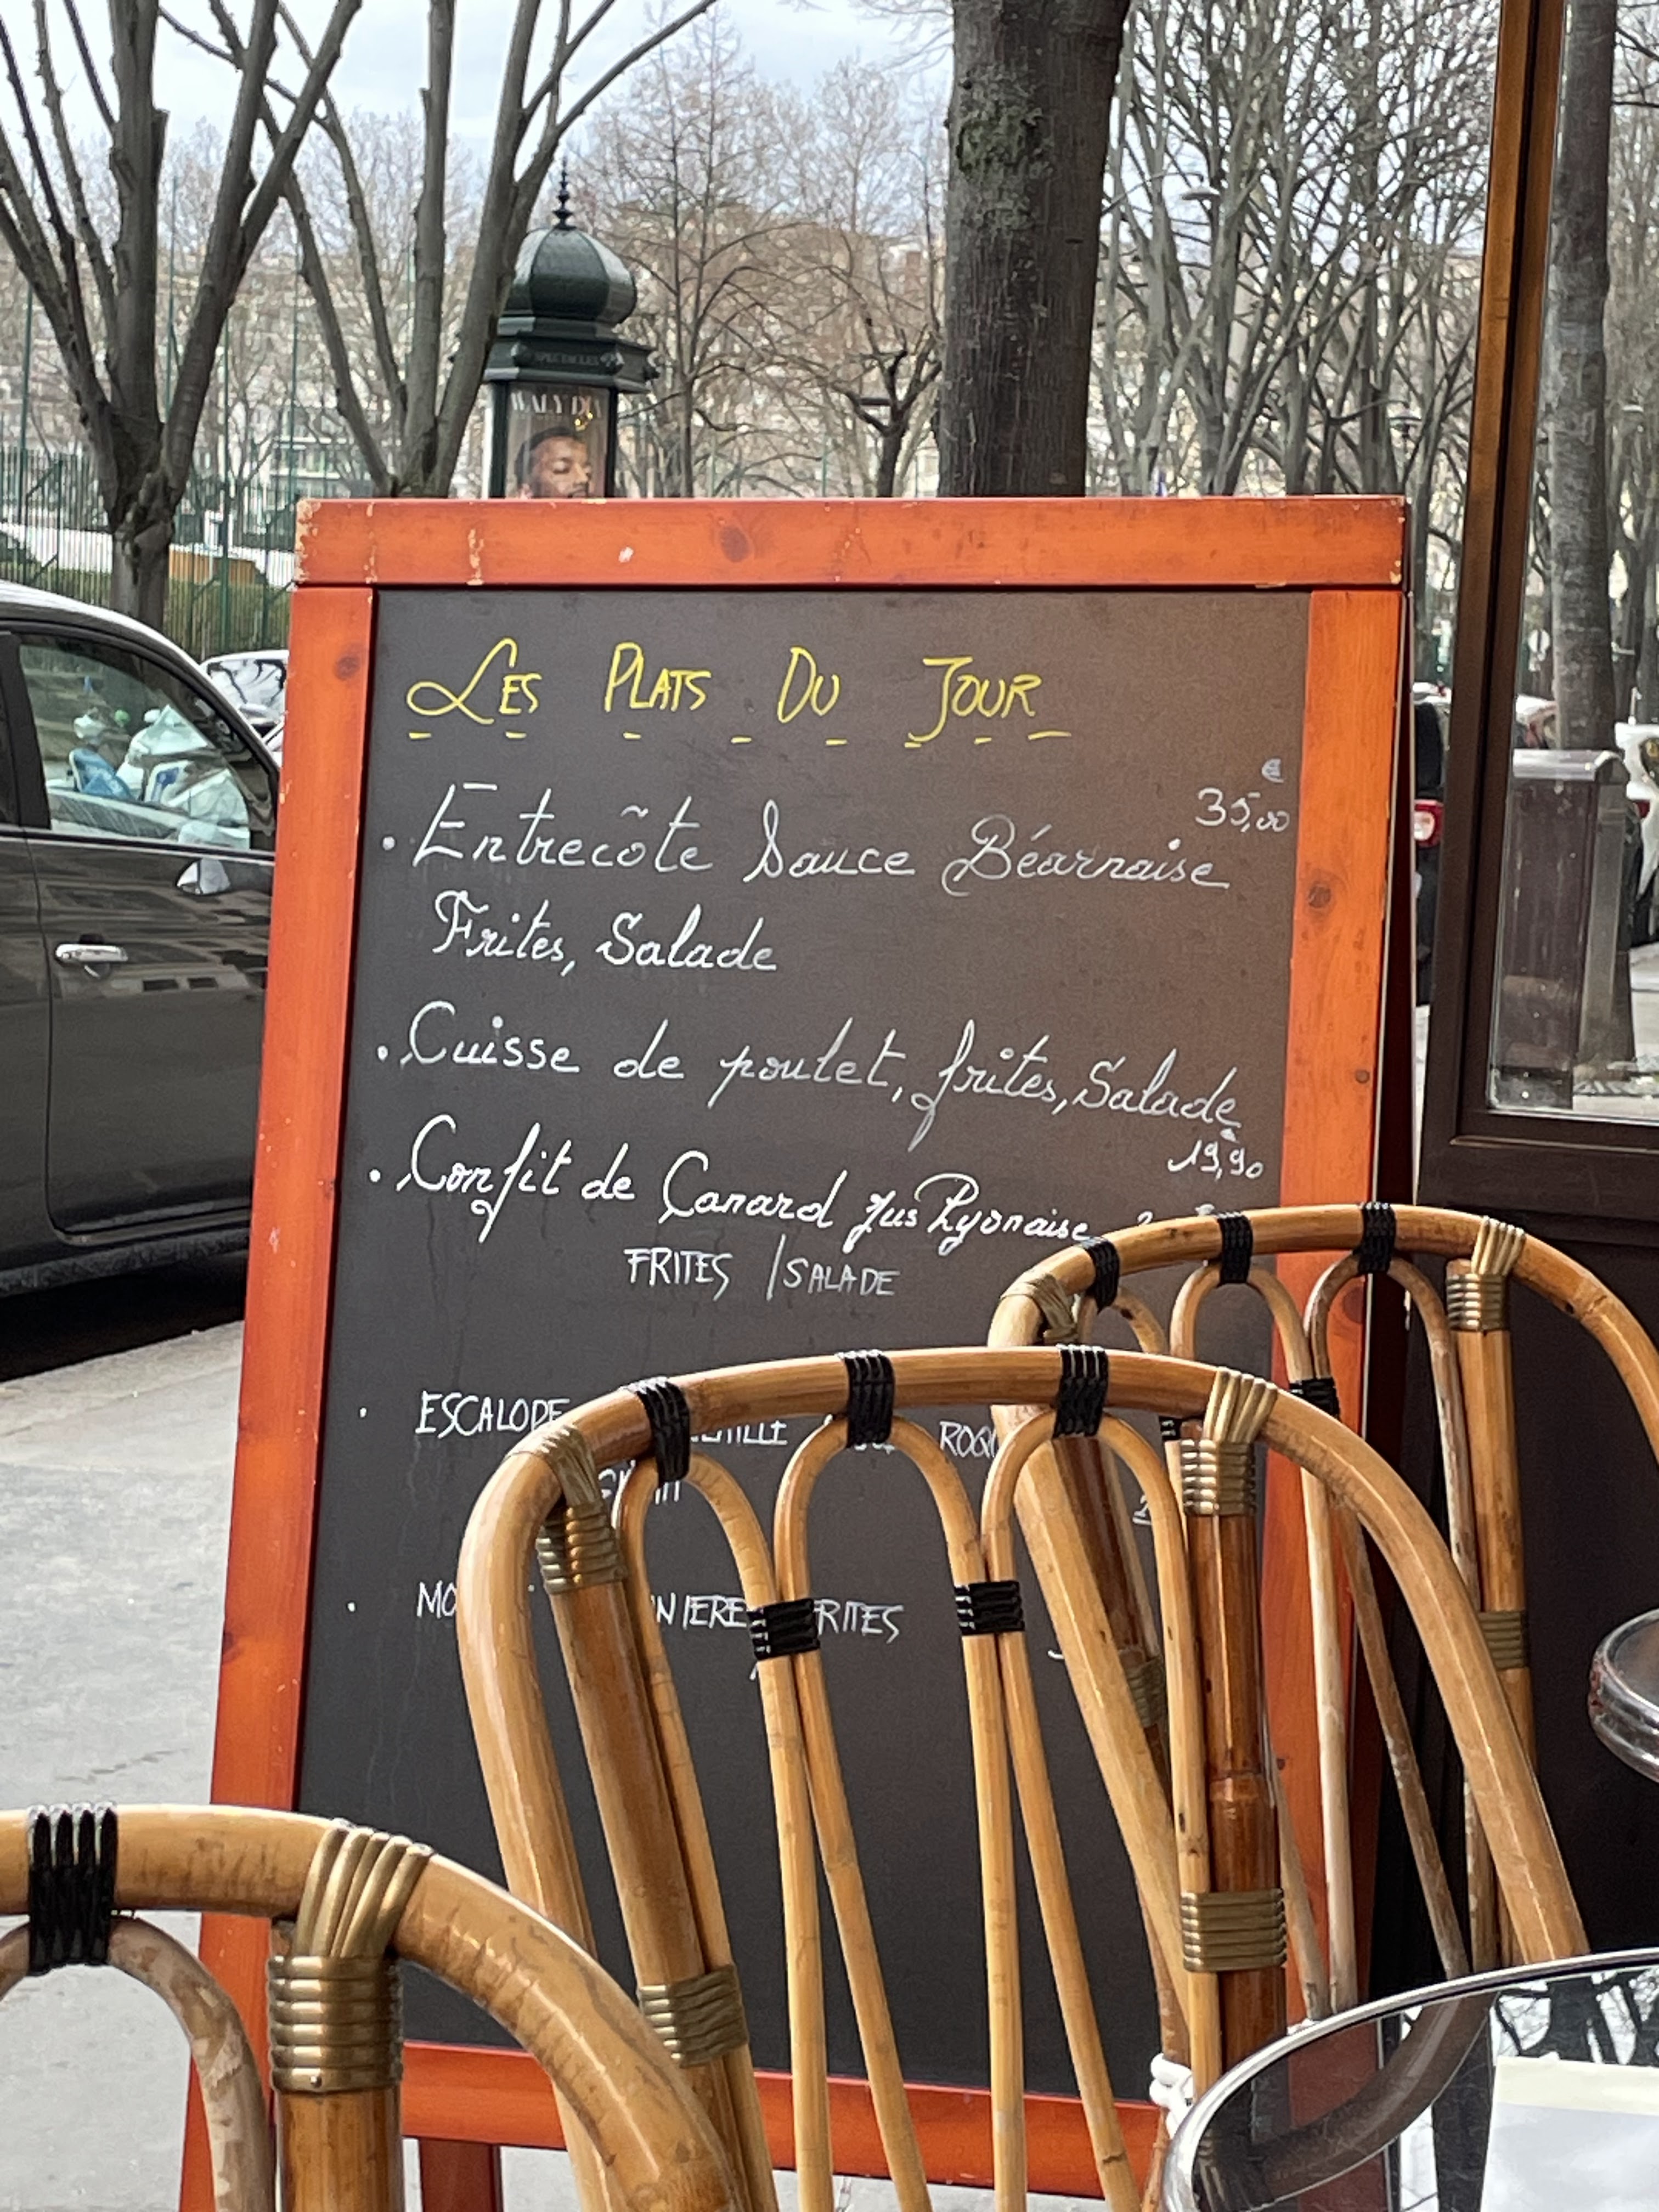 SPECTACLES
WALY DIA
LES PLATS DU JOUR
€
35,00
• Entrecôte Sauce Béarnaise
Frites, Salade
• Cuisse de poulet, frites, Salade
19,90
• Confit de Canard Jus Lyonaise
FRITES / SALADE
• ESCALOPE
• FRITES